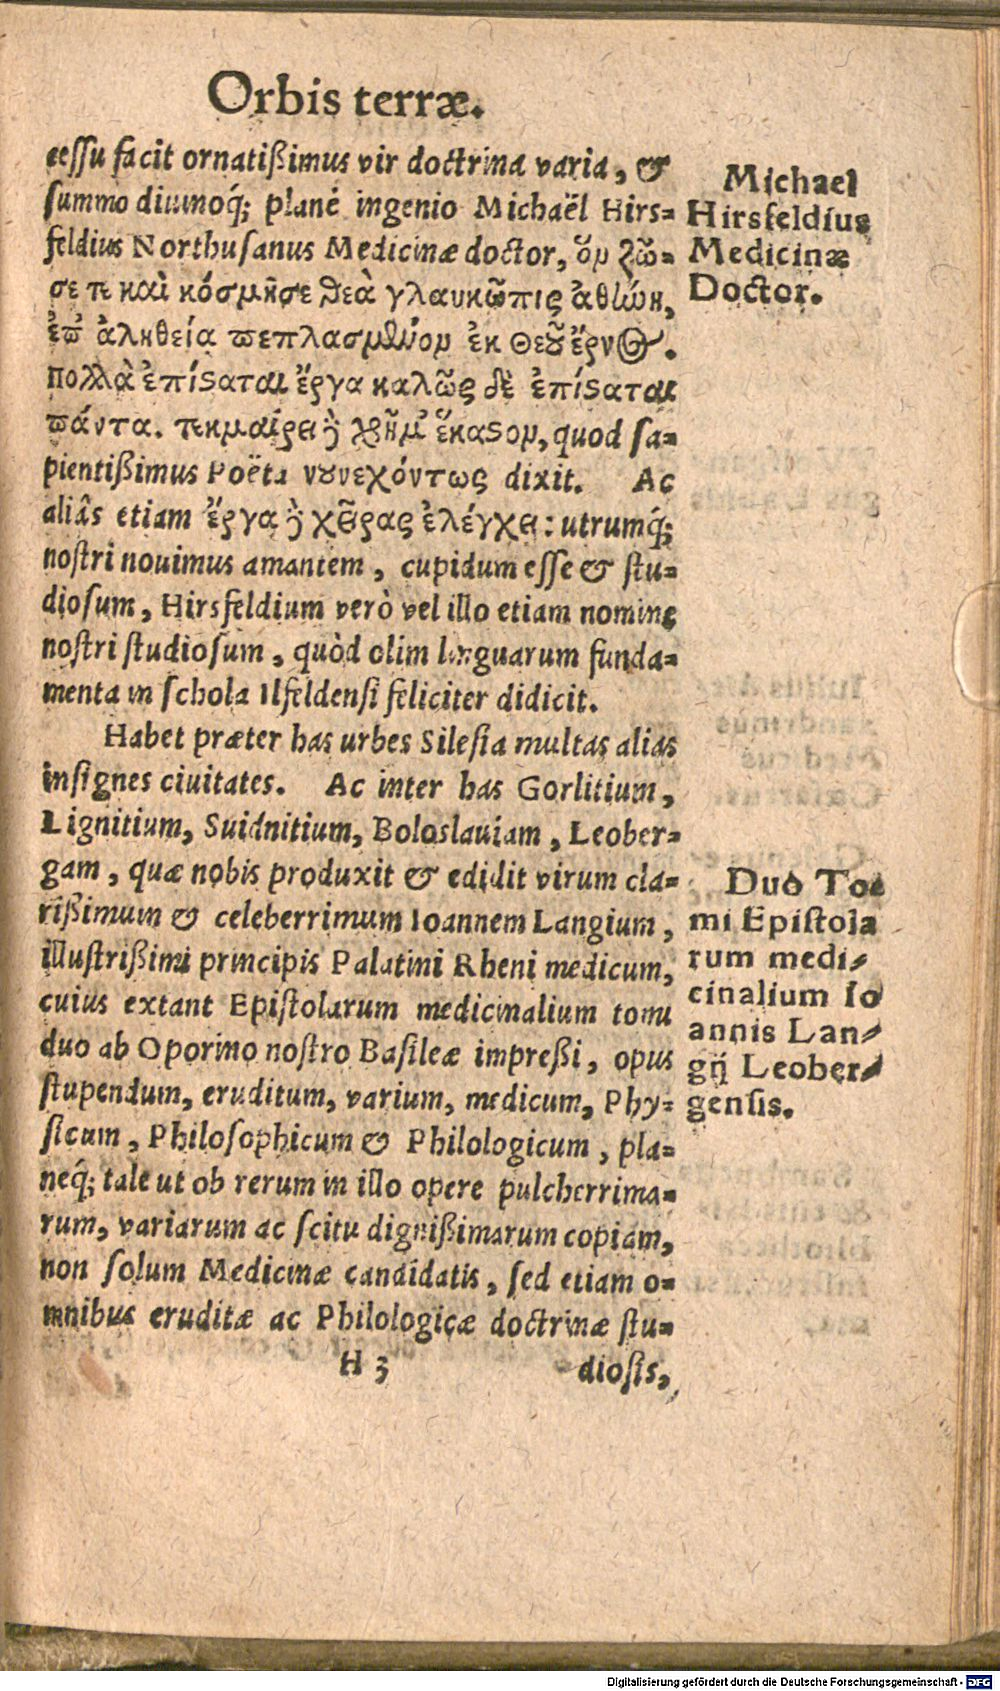 Orbis terræ.
cessu facit ornatißimus vir doctrina varia, &
summo diuinoq́; planè ingenio Michaël Hirs-
feldius Northusanus Medicinæ doctor, ὃν ζῶ-
σε τε καὶ κόσμησε θεὰ γλαυκῶπις ἀθήνη,
ἐπ' ἀληθείᾳ πεπλασμένον ἐκ Θεοῦ ἔρνος.
πολλὰ ἐπίσαται ἔργα καλῶς δὲ ἐπίσαται
πάντα. τεκμαίρει ἢ χρῆμ' ἕκαςον, quod sa-
pientißimus Poëta νουνεχόντως dixit. Ac
aliâs etiam ἔργα ἢ χεῖρας ἐλέγχει: utrumq́;
nostri nouimus amantem, cupidum esse & stu-
diosum, Hirsfeldium verò vel illo etiam nomine
nostri studiosum, quòd olim linguarum funda-
menta in schola Ilfeldensi feliciter didicit.
Habet præter has urbes Silesia multas alias
insignes ciuitates. Ac inter has Gorlitium,
Lignitium, Suidnitium, Boloslauiam, Leober-
gam, quæ nobis produxit & edidit virum cla-
rißimum & celeberrimum Ioannem Langium,
illustrißimi principis Palatini Rheni medicum,
cuius extant Epistolarum medicinalium tomi
duo ab Oporino nostro Basileæ impreßi, opus
stupendum, eruditum, varium, medicum, Phy-
sicum, Philosophicum & Philologicum, pla-
neq́; tale ut ob rerum in illo opere pulcherrima-
rum, variarum ac scitu dignißimarum copiam,
non solum Medicinæ candidatis, sed etiam o-
mnibus eruditæ ac Philologicæ doctrinæ stu-
H 3 diosis,
Michael
Hirsfeldius
Medicinæ
Doctor.
Duo To-
mi Epistola
rum medi-
cinalium Io
annis Lan-
gij Leober-
gensis.
Digitalisierung gefördert durch die Deutsche Forschungsgemeinschaft - DFG